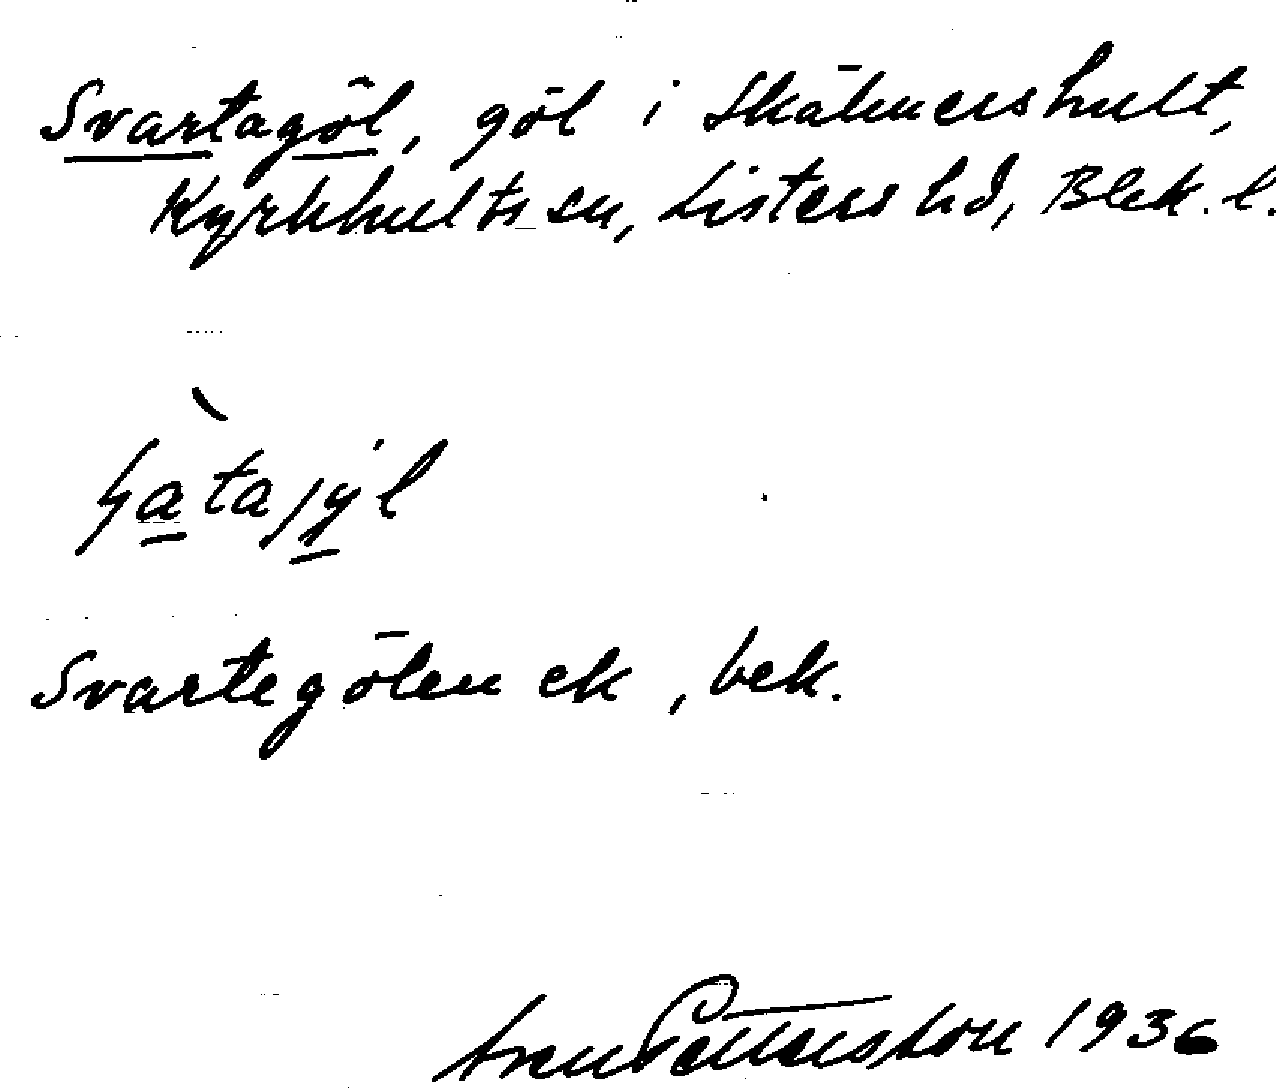 Svartagöl, göl i Skälmershult,
Kyrkhults sn, Listers hd, Blek. l.
Svartegölen ek, bek.
Sven Pettersson 1936